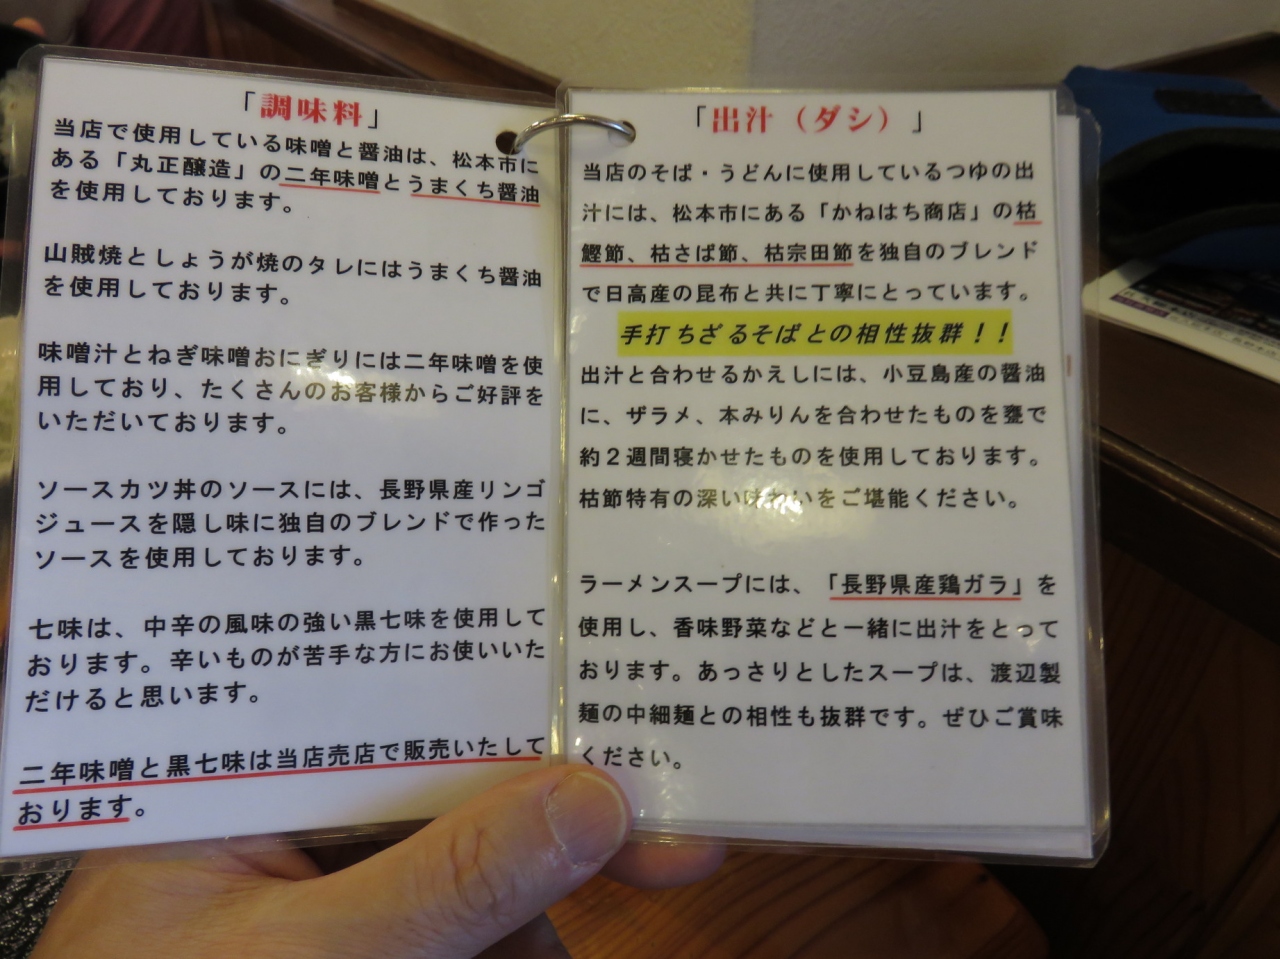 「調味料」
当店で使用している味噌と醤油は、松本市に
ある「丸正醸造」の二年味噌とうまくち醤油
を使用しております。
山賊焼としょうが焼のタレにはうまくち醤油
を使用しております。
味噌汁とねぎ味噌おにぎりには二年味噌を使
用しており、たくさんのお客様からご好評を
いただいております。
ソースカツ丼のソースには、長野県産リンゴ
ジュースを隠し味に独自のブレンドで作った
ソースを使用しております。
七味は、中辛の風味の強い黒七味を使用して
おります。辛いものが苦手な方にお使いいた
だけると思います。
二年味噌と黒七味は当店売店で販売いたして
おります。
「出汁（ダシ）」
当店のそば・うどんに使用しているつゆの出
汁には、松本市にある「かねはち商店」の枯
鰹節、枯さば節、枯宗田節を独自のブレンド
で日高産の昆布と共に丁寧にとっています。
手打ちざるそばとの相性抜群！！
出汁と合わせるかえしには、小豆島産の醤油
に、ザラメ、本みりんを合わせたものを甕で
約２週間寝かせたものを使用しております。
枯節特有の深い味わいをご堪能ください。
ラーメンスープには、「長野県産鶏ガラ」を
使用し、香味野菜などと一緒に出汁をとって
おります。あっさりとしたスープは、渡辺製
麺の中細麺との相性も抜群です。ぜひご賞味
ください。